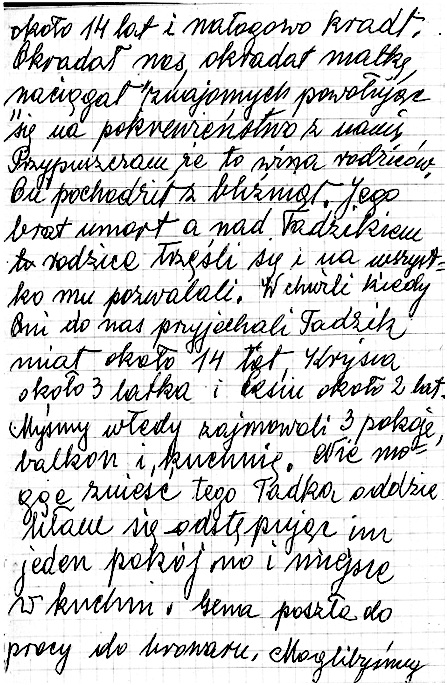 około 14 lat i nałogowo kradł.
Okradał nas, okradał matkę,
naciągał znajomych powołując
się na pokrewieństwo z nami,
Przypuszczam że to wina rodziców,
On pochodził z bliźniąt. Jego
brat umarł a nad Tadzikiem
to rodzice trzęśli się i na wszyst-
ko mu pozwalali. W chwili kiedy
Oni do nas przyjechali Tadzik
miał około 14 lat, Krysia
około 3 latka i Lesiu około 2 lat.
Myśmy wtedy zajmowali 3 pokoje,
balkon i kuchnię. Nie mo-
gąc znieść tego Tadka oddzie
liłam się odstępując im
jeden pokój no i miejsce
w kuchni. Gema poszła do
pracy do browaru. Moglibyśmy